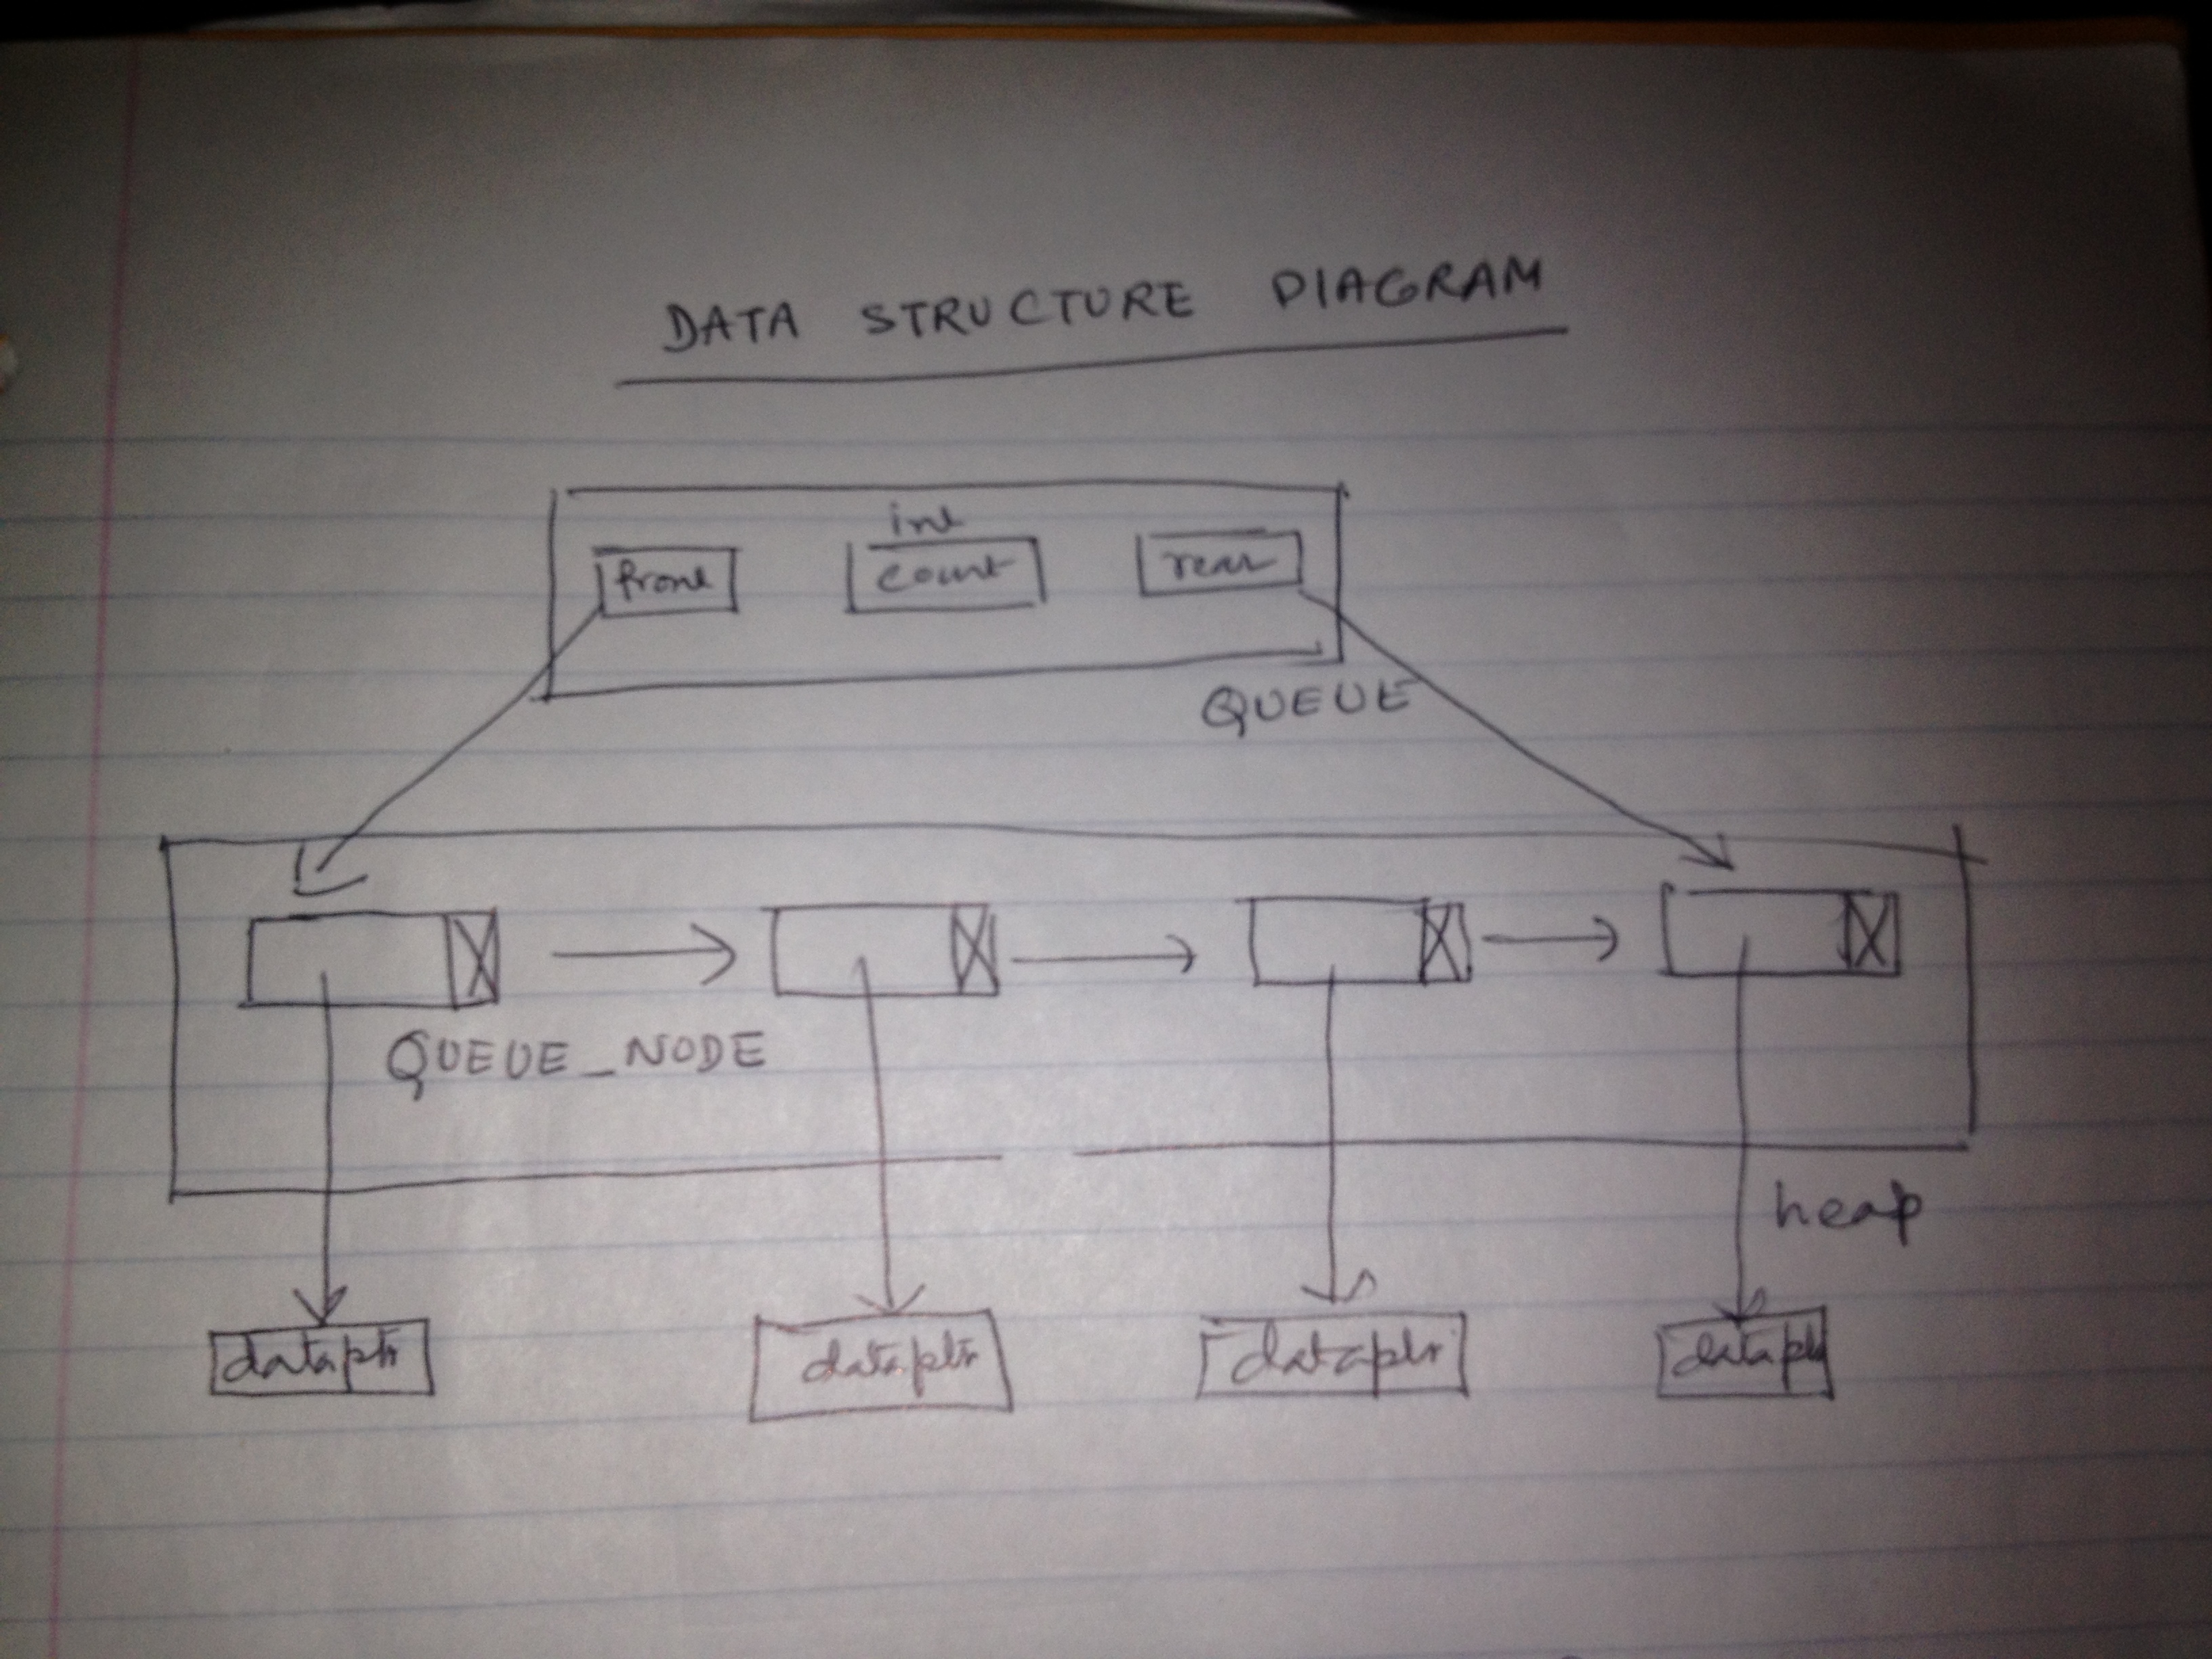 DATA STRUCTURE DIAGRAM
int
front count rear
QUEUE
QUEUE_NODE
heap
dataptr dataptr dataptr dataptr